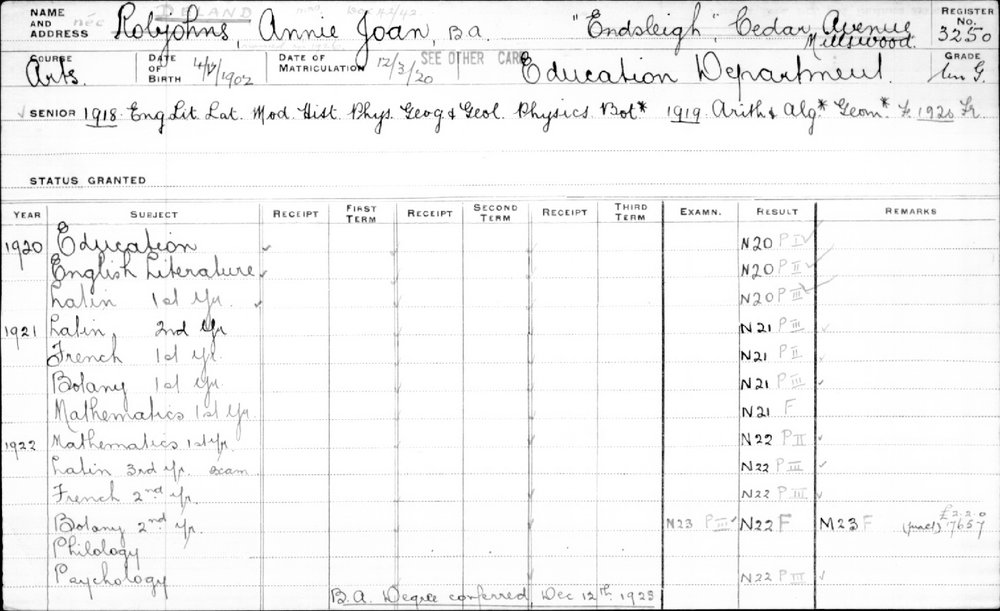 NAME AND ADDRESS née DELAND Robjohns, Annie Joan, B.A. "Endsleigh", Cedar Avenue Millswood. REGISTER No. 3250
COURSE Arts. DATE OF BIRTH 1902 DATE OF MATRICULATION 12/3/20 SEE OTHER CARD Education Department. GRADE
SENIOR 1918 Eng Lit. Lat. Mod. Hist. Phys. Geog & Geol. Physics. Bot* 1919 Arith & Alg* Geom.* F. 1920 Fr
STATUS GRANTED
YEAR SUBJECT RECEIPT FIRST TERM RECEIPT SECOND TERM RECEIPT THIRD TERM EXAMN. RESULT REMARKS
1920 Education N20 P IV
English Literature N20 P II
Latin 1st Yr. N20 P III
1921 Latin, 2nd Yr N21 P III
French 1st Yr. N21 P II
Botany 1st Yr. N21 P III
Mathematics 1st Yr. N21 F
1922 Mathematics 1st Yr. N22 P II
Latin 3rd Yr. exam N22 P III
French 2nd Yr. N22 P III
Botany 2nd Yr. M23 P III N22 F M23 F (pract) £2.2.0 7657
Philology
Psychology N22 P III
B.A. Degree conferred Dec 12th 1923